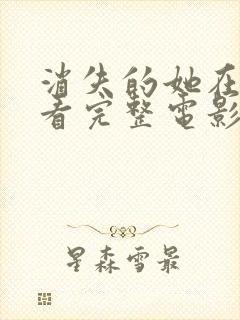 消失的她在
看完整电影
星森雪最